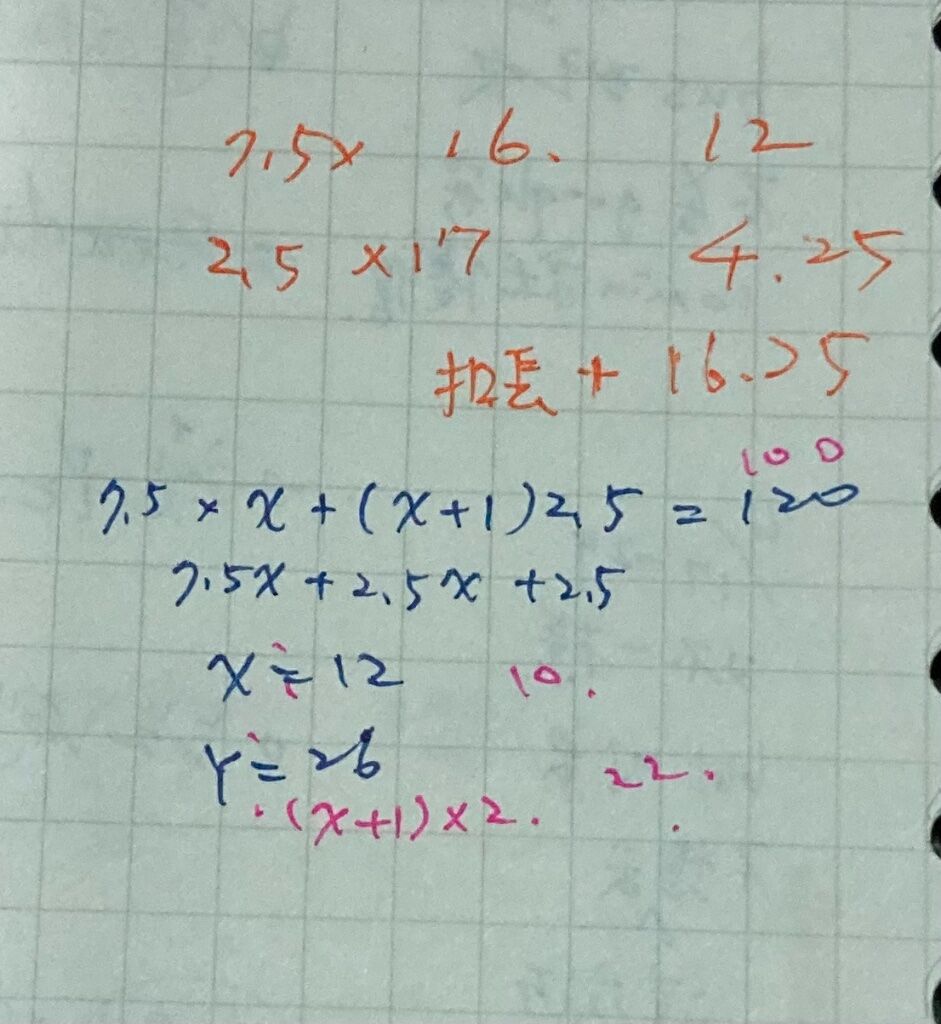 7.5× 16. 12
2.5 ×17 4.25
扣丟 + 16.25
100
7.5 × x + (x+1)2.5 = 120
7.5x + 2.5x +2.5
x ≒ 12 10.
Y ≒ 26 22.
(x+1)×2.